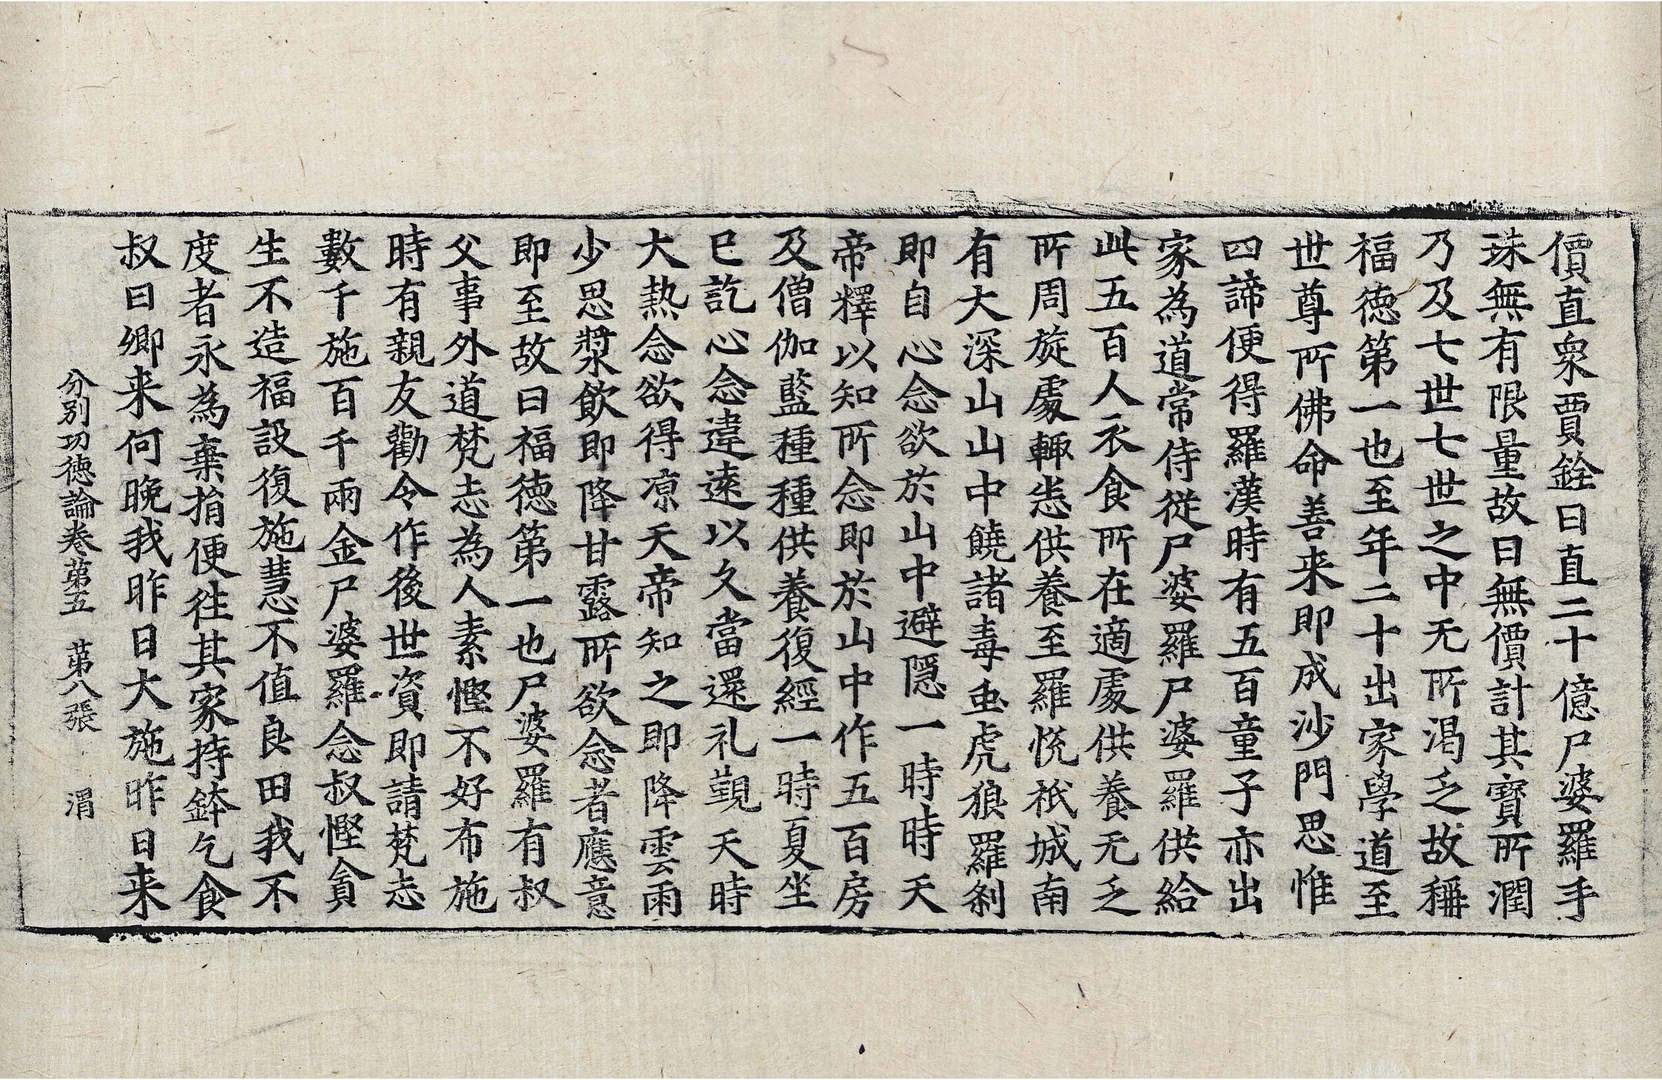 價直衆賈銓曰直二十億尸婆羅手
珠無有限量故曰無價計其寶所潤
乃及七世七世之中无所渴乏故稱
福德第一也至年二十出家學道至
世尊所佛命善来即成沙門思惟
四諦便得羅漢時有五百童子亦出
家為道常侍從尸婆羅尸婆羅供給
此五百人衣食所在適處供養无乏
所周旋處輙恙供養至羅悅祇城南
有大深山山中饒諸毒虫虎狼羅剎
即自心念欲於山中避隱一時時天
帝釋以知所念即於山中作五百房
及僧伽藍種種供養復經一時夏坐
已訖心念違遠以久當還礼覲天時
大熱念欲得凉天帝知之即降雲雨
少思漿飲即降甘露所欲念者應意
即至故曰福德第一也尸婆羅有叔
父事外道梵志為人素慳不好布施
時有親友勸令作後世資即請梵志
數千施百千兩金尸婆羅念叔慳貪
生不造福設復施慧不值良田我不
度者永為棄捐便往其家持鉢乞食
叔曰卿来何晚我昨日大施昨日来
分別功德論卷第五 第八張 渭